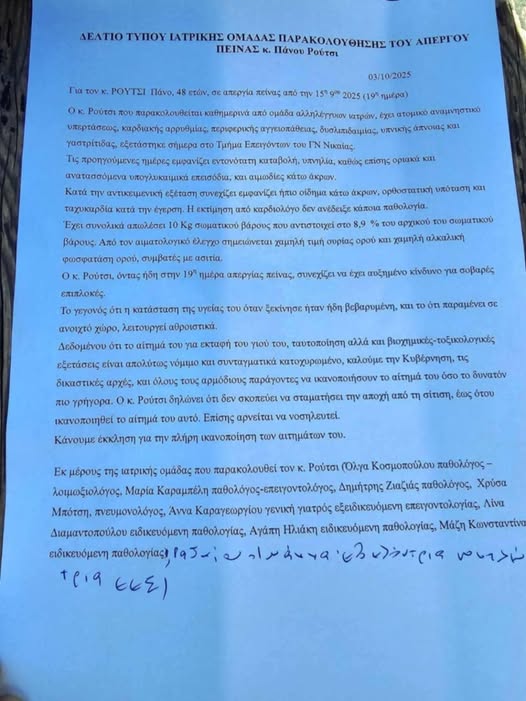 ΔΕΛΤΙΟ ΤΥΠΟΥ ΙΑΤΡΙΚΗΣ ΟΜΑΔΑΣ ΠΑΡΑΚΟΛΟΥΘΗΣΗΣ ΤΟΥ ΑΠΕΡΓΟΥ
ΠΕΙΝΑΣ κ. Πάνου Ρούτσι
03/10/2025
Για τον κ. ΡΟΥΤΣΙ Πάνο, 48 ετών, σε απεργία πείνας από την 15η 9ου 2025 (19η ημέρα)
Ο κ. Ρούτσι που παρακολουθείται καθημερινά από ομάδα αλληλέγγυων ιατρών, έχει ατομικό αναμνηστικό
υπερτάσεως, καρδιακής αρρυθμίας, περιφερικής αγγειοπάθειας, δυσλιπιδαιμίας, υπνικής άπνοιας και
γαστρίτιδας, εξετάστηκε σήμερα στο Τμήμα Επειγόντων του ΓΝ Νικαίας.
Τις προηγούμενες ημέρες εμφανίζει εντονότατη καταβολή, υπνηλία, καθώς επίσης οριακά και
ανατασσόμενα υπογλυκαιμικά επεισόδια, και αιμωδίες κάτω άκρων.
Κατά την αντικειμενική εξέταση συνεχίζει εμφανίζει ήπιο οίδημα κάτω άκρων, ορθοστατική υπόταση και
ταχυκαρδία κατά την έγερση. Η εκτίμηση από καρδιολόγο δεν ανέδειξε κάποια παθολογία.
Έχει συνολικά απωλέσει 10 Kg σωματικού βάρους που αντιστοιχεί στο 8,9 % του αρχικού του σωματικού
βάρους. Από τον αιματολογικό έλεγχο σημειώνεται χαμηλή τιμή ουρίας ορού και χαμηλή αλκαλική
φωσφατάση ορού, συμβατές με ασιτία.
Ο κ. Ρούτσι, όντας ήδη στην 19η ημέρα απεργίας πείνας, συνεχίζει να έχει αυξημένο κίνδυνο για σοβαρές
επιπλοκές.
Το γεγονός ότι η κατάσταση της υγείας του όταν ξεκίνησε ήταν ήδη βεβαρυμένη, και το ότι παραμένει σε
ανοιχτό χώρο, λειτουργεί αθροιστικά.
Δεδομένου ότι το αίτημά του για εκταφή του γιού του, ταυτοποίηση αλλά και βιοχημικές-τοξικολογικές
εξετάσεις είναι απολύτως νόμιμο και συνταγματικά κατοχυρωμένο, καλούμε την Κυβέρνηση, τις
δικαστικές αρχές, και όλους τους αρμόδιους παράγοντες να ικανοποιήσουν το αίτημά του όσο το δυνατόν
πιο γρήγορα. Ο κ. Ρούτσι δηλώνει ότι δεν σκοπεύει να σταματήσει την αποχή από τη σίτιση, έως ότου
ικανοποιηθεί το αίτημά του αυτό. Επίσης αρνείται να νοσηλευτεί.
Κάνουμε έκκληση για την πλήρη ικανοποίηση των αιτημάτων του.
Εκ μέρους της ιατρικής ομάδας που παρακολουθεί τον κ. Ρούτσι (Όλγα Κοσμοπούλου παθολόγος –
λοιμωξιολόγος, Μαρία Καραμπέλη παθολόγος-επειγοντολόγος, Δημήτρης Ζιαζιάς παθολόγος, Χρύσα
Μπότση, πνευμονολόγος, Άννα Καραγεωργίου γενική γιατρός εξειδικευόμενη επειγοντολογίας, Λίνα
Διαμαντοπούλου ειδικευόμενη παθολογίας, Αγάπη Ηλιάκη ειδικευόμενη παθολογίας, Μάζη Κωνσταντίνα
ειδικευόμενη παθολογίας), εθελόντρια
τρια ΕΕΣ)